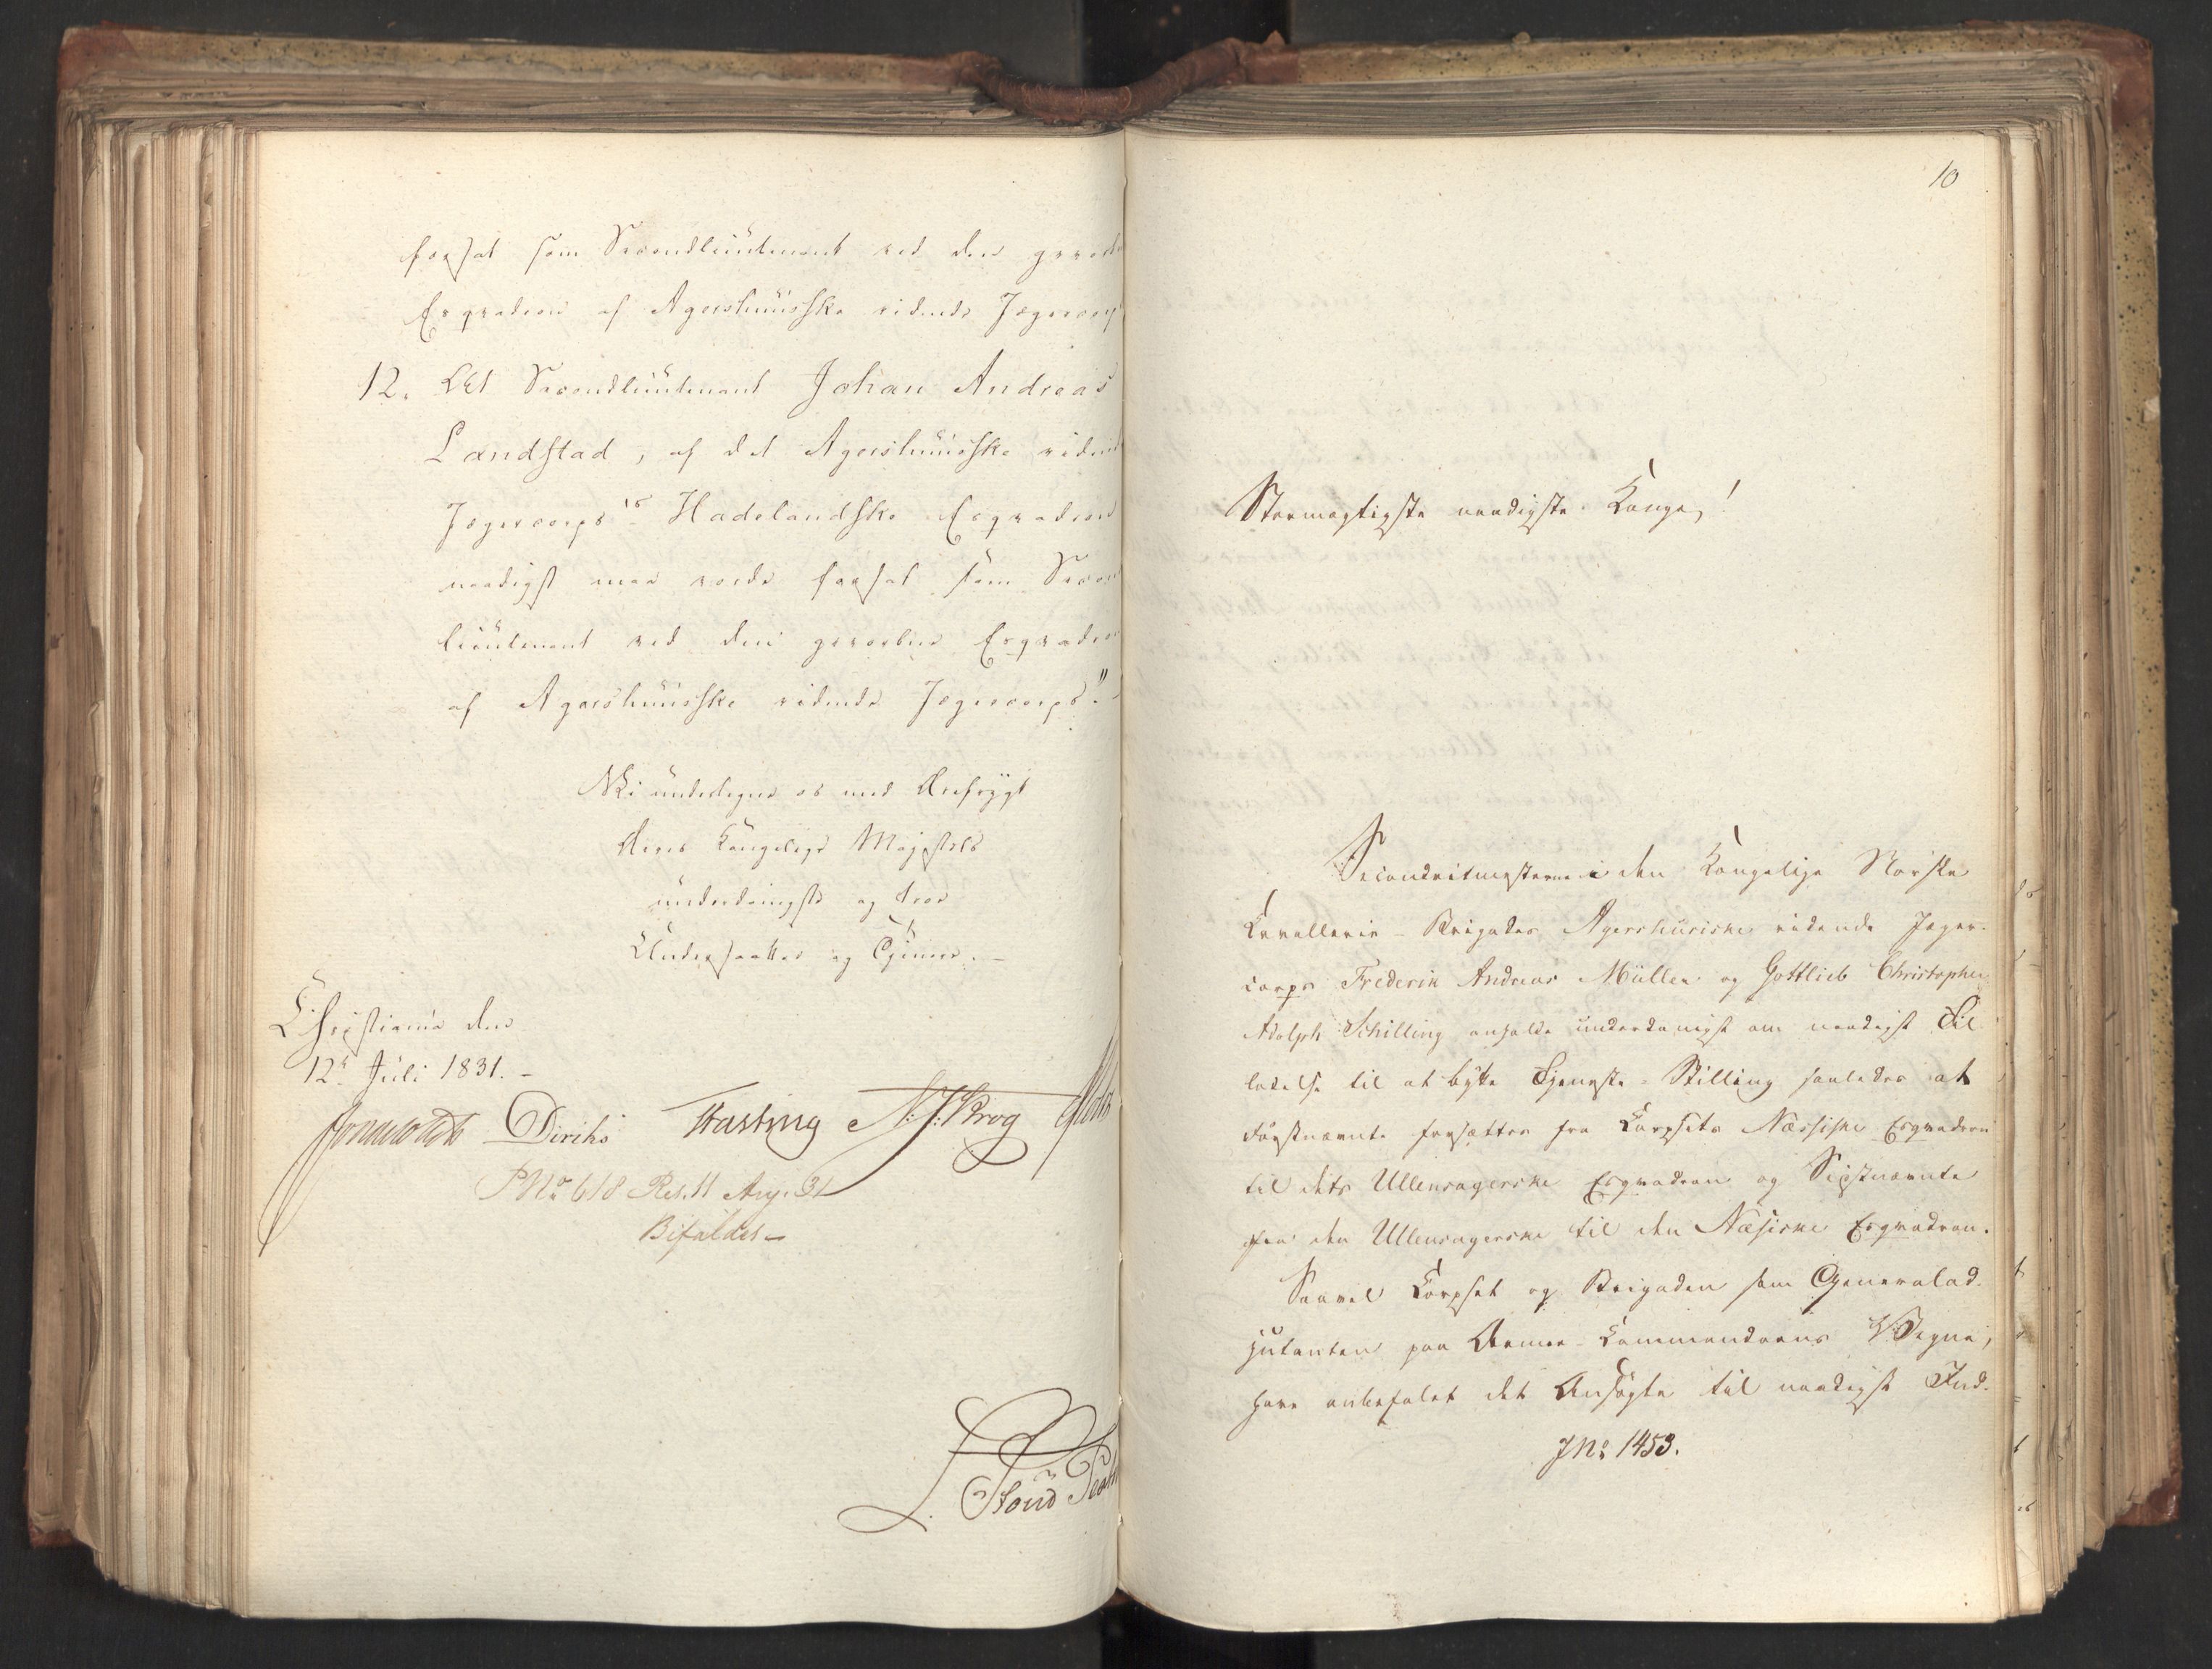 forsat som Secondlieutenant ved den gevorbne
Esqvadron af Agershuusske ridende Jægercorps
12. At Secondlieutenant Johan Andreas
Landstad, af det Agershuusske ridende
Jægercorps's Hadelandske Esqvadron
naadigst maa vorde forsat som Second
lieutenant ved den gevorbne Esqvadron
af Agershuusske ridende Jægercorps."
Vi undertegne os med Ærefrygt
Deres Kongelige Majestæts
underdanigste og troe
Undersaatter og Tjenere.
Christiania den
12te Juli 1831.
Diriks Fasting N.J. Krog
PNo 618 Res. 11 Aug. 31
Bifaldes
10
Stormægtigste naadigste Konge!
Secondritmesterne i den Kongelige Norske
Cavallerie-Brigades Agershusiske ridende Jæger-
corps Frederik Andreas Müller og Gottlieb Christopher
Adolph Schilling ansøge underdanigst om naadigst Til-
ladelse til at bytte Tjeneste-Stilling saaledes at
Førstnævnte forsættes fra Corpsets Næssiske Esqvadron
til dets Ullensagerske Esqvadron og Sidstnævnte
fra den Ullensagerske til den Næsiske Esqvadron.
Saavel Corpset og Brigaden som Generalad-
jutanten paa Armee-Commandoens Vegne,
have anbefalet det Ansøgte til naadigst Ind-
JNo 1453.